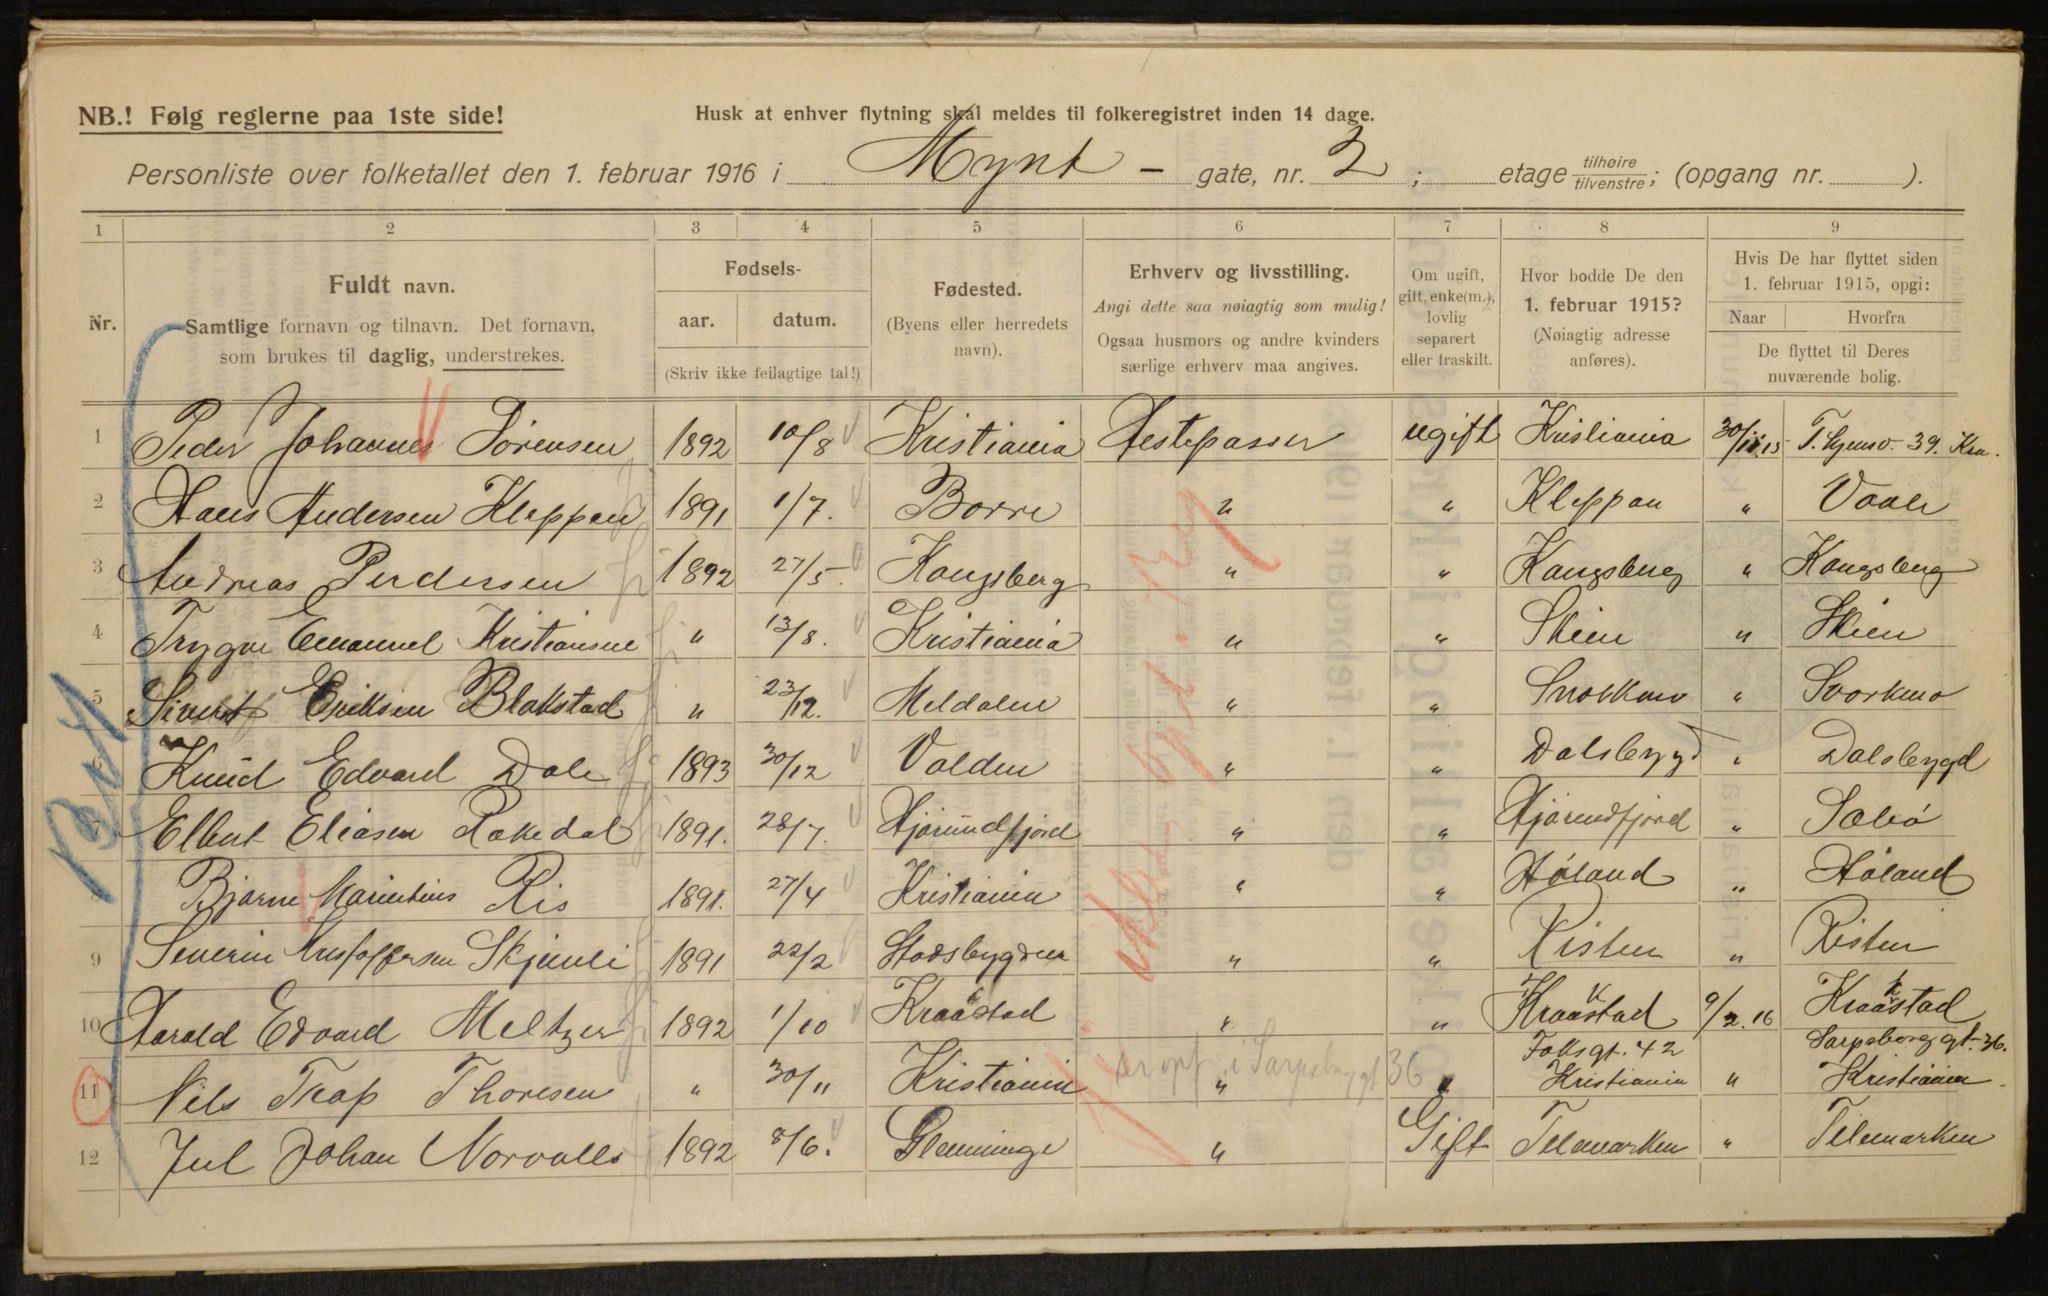 NB.! Følg reglerne paa 1ste side!
Husk at enhver flytning skal meldes til folkeregistret inden 14 dage.
Personliste over folketallet den 1. februar 1916 i Mynt - gate, nr. 2; etage tilhøire / tilvenstre; (opgang nr. ).
1 2 3 4 5 6 7 8 9
Nr.
Fuldt navn.
Samtlige fornavn og tilnavn. Det fornavn,
som brukes til daglig, understrekes.
Fødsels-
aar. datum.
(Skriv ikke feilagtige tal!)
Fødested.
(Byens eller herredets
navn).
Erhverv og livsstilling.
Angi dette saa nøiagtig som mulig!
Ogsaa husmors og andre kvinders
særlige erhverv maa angives.
Om ugift,
gift, enke(m.),
lovlig
separert
eller fraskilt.
Hvor bodde De den
1. februar 1915?
(Nøiagtig adresse
anføres).
Hvis De har flyttet siden
1. februar 1915, opgi:
Naar Hvorfra
De flyttet til Deres
nuværende bolig.
1 Peder Johannes Sørensen 1892 10/8 Kristiania Hestepasser ugift Kristiania 30/11.15 39. Kra.
2 Hans Andersen Kleppan 1891 1/7. Borre " " Kleppan " Vaale
3 Andreas Pedersen 1892 27/5. Kongsberg " " Kongsberg " Kongsberg
4 Trygve Emanuel Kristiansen " 13/8. Kristiania " " Skien " Skien
5 Sivert Eriksen Blakstad " 23/12. Meldalen " " Svorkmo " Svorkmo
6 Knud Edvard Dale 1893 30/12 Volden " " Dalsbygd " Dalsbygd
7 Elbert Eliasen Rakedal 1891. 28/7. Hjørundfjord " " Hjørundfjord " Sæbø
8 Bjarne Marentius Ris 1891. 27/4 Kristiania " " Høland " Høland
9 Severin Kristoffersen Skjemli 1891 22/2 Stadsbygden " " Risten " Risten
10 Harald Edvard Meltzer 1892 1/10 Kraakstad " " Kraakstad 9/2.16 Kraakstad
Sarpsborg gt. 36.
11 Nils Trap Thoresen " 30/11 Kristiania " " Falksgt. 42
Kristiania " Kristiania
i Sarpsborggt 36
12 Jul Johan Norvalls 1892 8/6. Glemminge " Gift Telemarken " Telemarken